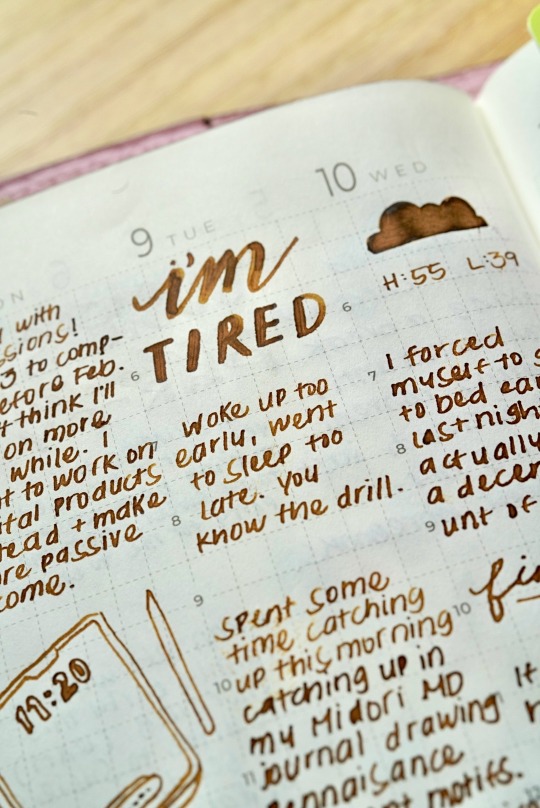 ON
with
sions!
3 to comp-
efore Feb.
t think I'll
on more
while. I
t to work on
ital products
tead + make
re passive
come.
11:20
9 TUE
i'm
TIRED
6
7
woke up too
early, went
to sleep too
late. You
8
know the drill.
9
spent some
time catching
10 up this morning
catching up in
my Midori MD
11 journal drawing
ennaisance
motifs.
10 WED
H:55 L:39
6
7 I forced
myself to s
to bed ear
8 last nigh
actually
a decen
9 unt of
10
It